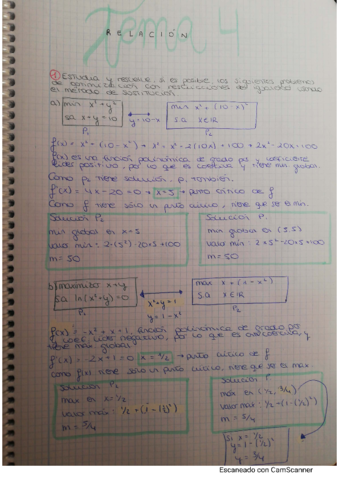 Tema 4
RELACIÓN
① Estudia y resuelve, si es posible, los siguientes problemas
de optimización con restricciones de igualdad usando
el método de sustitución.
a) min x²+y²
sa x+y=10
P₁
y=10-x
min x²+(10-x)²
s.a x∈ℝ
P₂
f(x) = x² + (10-x)² → x² + x² - 2(10x) + 100 → 2x² - 20x + 100
f(x) es una función polinómica de grado par y coeficiente
líder positivo, por lo que es coerciva y tiene mín. global.
Como P₂ tiene solución, P₁ también.
f'(x) = 4x - 20 = 0 → x=5 → punto crítico de f
Como f tiene sólo un punto crítico, tiene que ser el mín.
Solución P₂
min global es x=5
valor mín: 2·(5²)-20·5+100
m=50
Solución P₁
min global es (5,5)
valor mín: 2·5²-20·5+100
m=50
b) maximizar x+y
s.a ln(x²+y)=0
P₁
x²+y=1
y=1-x²
max x+(1-x²)
s.a x∈ℝ
P₂
f(x) = -x²+x+1, función polinómica de grado par
y coef. líder negativo, por lo que es anticoerciva y
tiene max global.
f'(x) = -2x+1=0 x=1/2 → punto crítico de f
como f(x) tiene sólo un punto crítico, tiene que ser max
Solución P₂
max es x=1/2
valor máx: 1/2+(1-(1/2)²)
m=3/4
Solución P₁
máx es (1/2, 3/4)
valor max: 1/2+(1-(1/2)²)
m=3/4
si x=1/2
y=1-(1/2)²
y=3/4
Escaneado con CamScanner